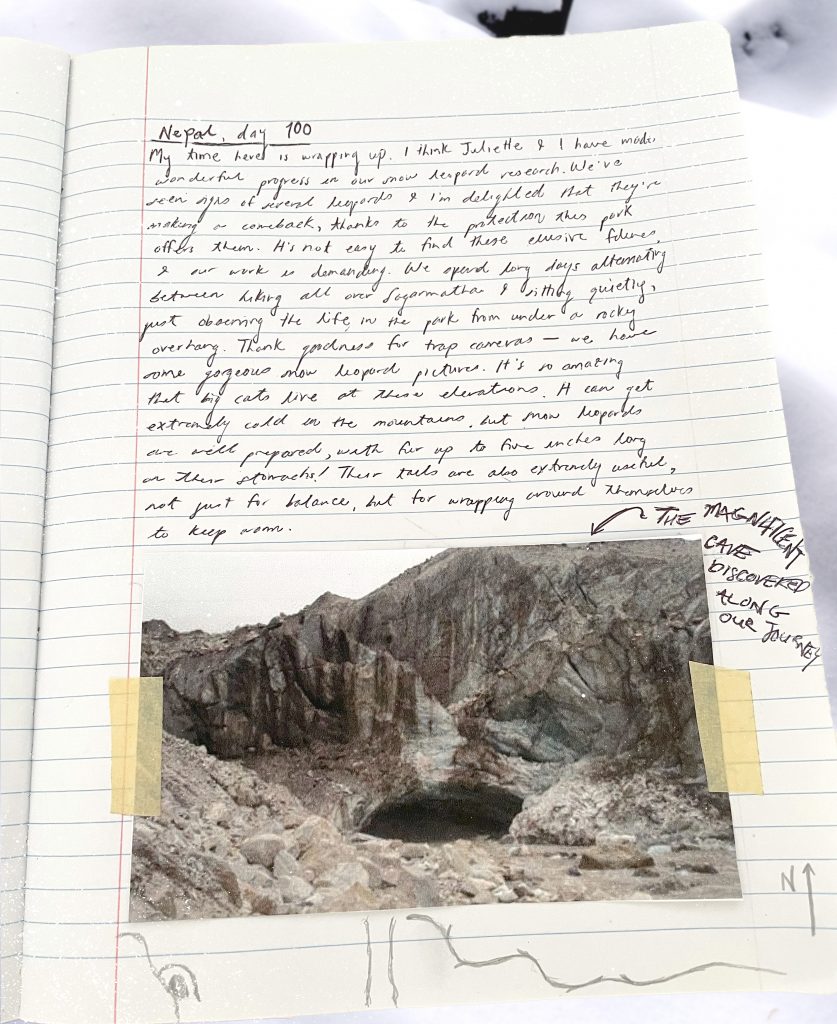 Nepal, day 100
My time here is wrapping up. I think Juliette & I have made
wonderful progress in our snow leopard research. We've
seen signs of several leopards & I'm delighted that they're
making a comeback, thanks to the protection this park
offers them. It's not easy to find these elusive felines,
& our work is demanding. We spend long days alternating
between hiking all over Sagarmatha & sitting quietly,
just observing the life in the park from under a rocky
overhang. Thank goodness for trap cameras — we have
some gorgeous snow leopard pictures. It's so amazing
that big cats live at these elevations. It can get
extremely cold in the mountains, but snow leopards
are well prepared, with fur up to five inches long
on their stomachs! Their tails are also extremely useful,
not just for balance, but for wrapping around themselves
to keep warm.
THE MAGNIFICENT
CAVE
DISCOVERED
ALONG
OUR JOURNEY
N